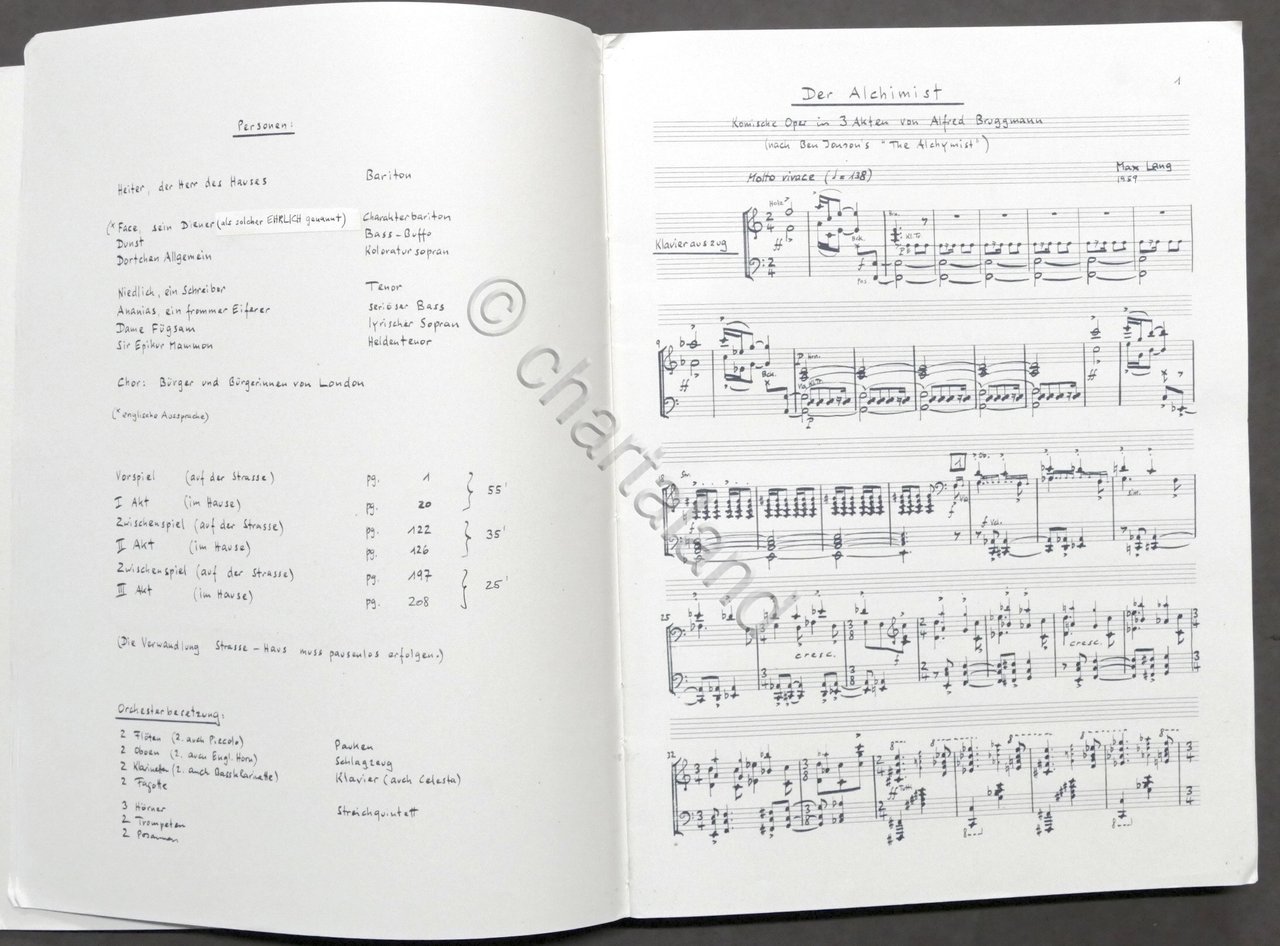 Personen:
Heiter, der Herr des Hauses Bariton
(* Face, sein Diener (als solcher EHRLICH genannt) Charakterbariton
Dunst Bass-Buffo
Dortchen Allgemein Koloratursopran
Niedlich, ein Schreiber Tenor
Ananias, ein frommer Eiferer seriöser Bass
Dame Fügsam lyrischer Sopran
Sir Epikur Mammon Heldentenor
Chor: Bürger und Bürgerinnen von London
(* englische Aussprache)
Vorspiel (auf der Strasse) pg. 1
55'
I Akt (im Hause) pg. 20
Zwischenspiel (auf der Strasse) pg. 122
35'
II Akt (im Hause) pg. 126
Zwischenspiel (auf der Strasse) pg. 197
25'
III Akt (im Hause) pg. 208
(Die Verwandlung Strasse - Haus muss pausenlos erfolgen.)
Orchesterbesetzung:
2 Flöten (2. auch Piccolo)
2 Oboen (2. auch Engl. Horn)
2 Klarineten (2. auch Bassklarinette)
2 Fagotte
3 Hörner
2 Trompeten
2 Posaunen
Pauken
Schlagzeug
Klavier (auch Celesta)
Streichquintett
1
Der Alchimist
Komische Oper in 3 Akten von Alfred Bruggmann
(nach Ben Jonson's "The Alchymist")
Max Lang
1989
Molto vivace (♩= 138)
Klavierauszug
Holz
ff
Bck.
f
Pos
Hrn.
Kl. Tr.
p
9
ff
Bck.
Hrn.
Kl. Tr.
p
ff
Str.
1
Ob.
f Vla
f Vch.
25
cresc.
f
cresc.
32
8
8
8
8
ff Tutti
8
8
8
© chartaland